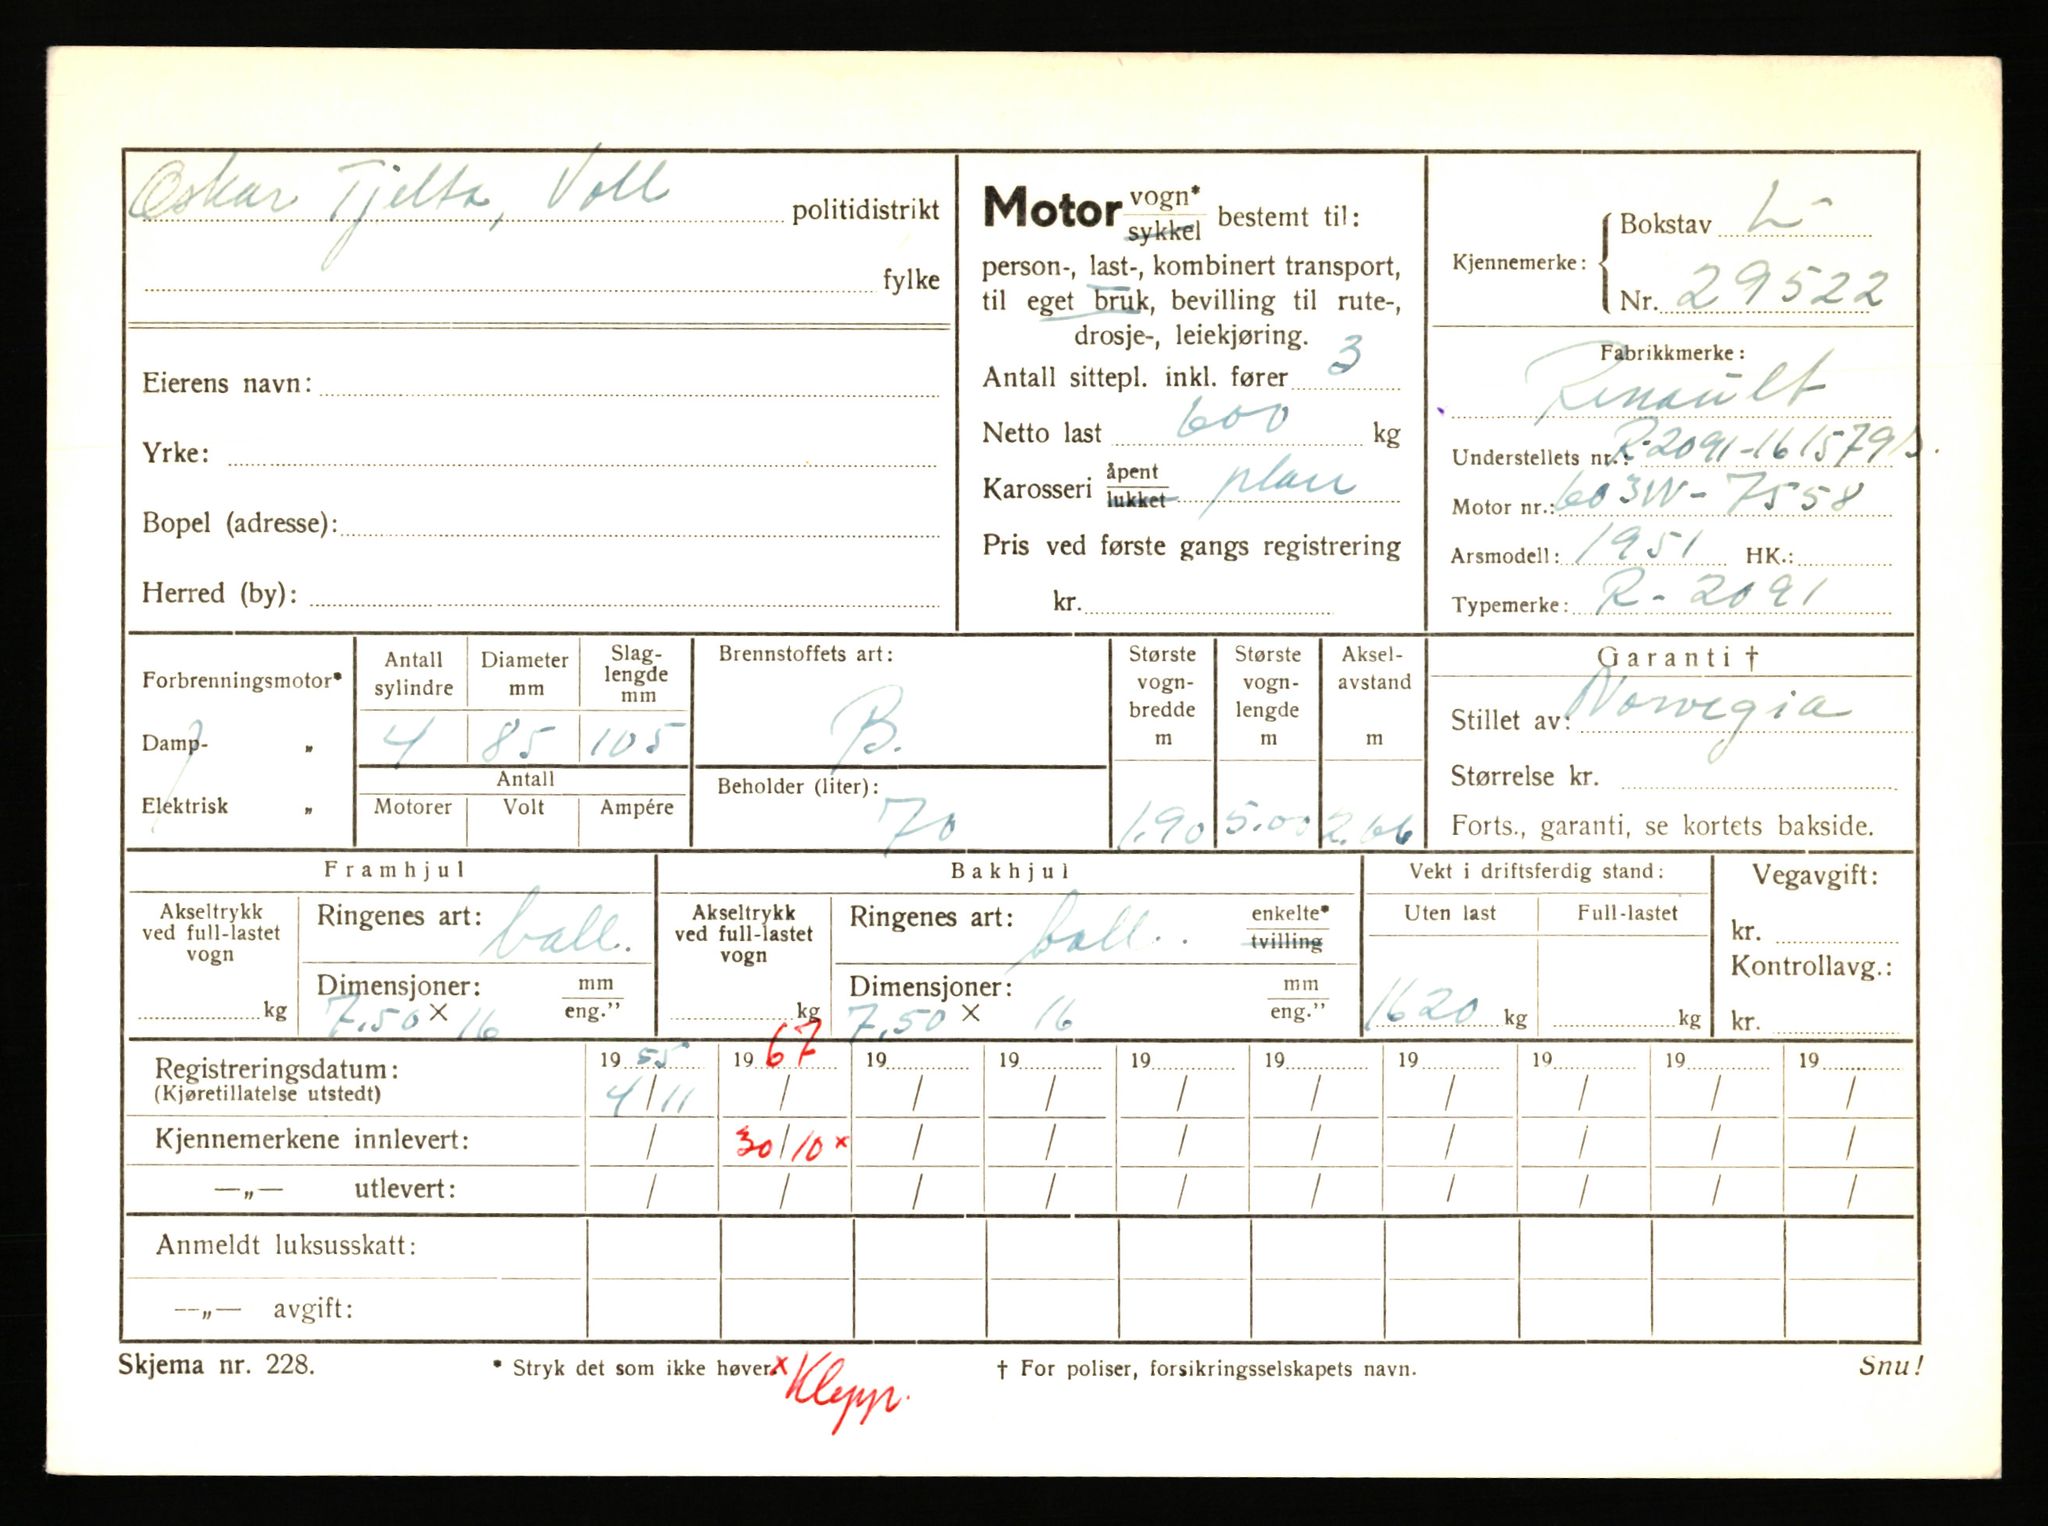 Oskar Tjelta, Voll politidistrikt
fylke
Eierens navn:
Yrke:
Bopel (adresse):
Herred (by):
Motor vogn* sykkel bestemt til:
person-, last-, kombinert transport,
til eget bruk, bevilling til rute-,
drosje-, leiekjøring.
Antall sittepl. inkl. fører 3
Netto last 600 kg
Karosseri åpent lukket plan
Pris ved første gangs registrering
kr.
Kjennemerke: Bokstav L
Nr. 29522
Fabrikkmerke:
Renault
Understellets nr.: R-2091-1615791
Motor nr.: 603W-7558
Arsmodell: 1951 HK.:
Typemerke: R-2091
Forbrenningsmotor*
Damp- „
Elektrisk „
Antall sylindre 4
Diameter mm 85
Slaglengde mm 105
Antall
Motorer Volt Ampére
Brennstoffets art:
B.
Beholder (liter):
70
Største vogn-bredde m 1.90
Største vogn-lengde m 5.00
Aksel-avstand m 2.66
Garanti †
Stillet av: Norwegia
Størrelse kr.
Forts., garanti, se kortets bakside.
Framhjul
Akseltrykk ved full-lastet vogn kg
Ringenes art: ball.
Dimensjoner: mm eng."
7.50 × 16
Bakhjul
Akseltrykk ved full-lastet vogn kg
Ringenes art: ball. enkelte* tvilling
Dimensjoner: mm eng."
7.50 × 16
Vekt i driftsferdig stand:
Uten last Full-lastet
1620 kg kg
Vegavgift:
kr.
Kontrollavg.:
kr.
Registreringsdatum: 19 55 19 67 19 19 19 19 19 19 19 19
(Kjøretillatelse utstedt) 4/11 / / / / / / / / /
Kjennemerkene innlevert: / 30/10 x / / / / / / / /
—„— utlevert: / / / / / / / / / /
Anmeldt luksusskatt:
—„— avgift:
Skjema nr. 228. * Stryk det som ikke høver. x Klepp. † For poliser, forsikringsselskapets navn. Snu!